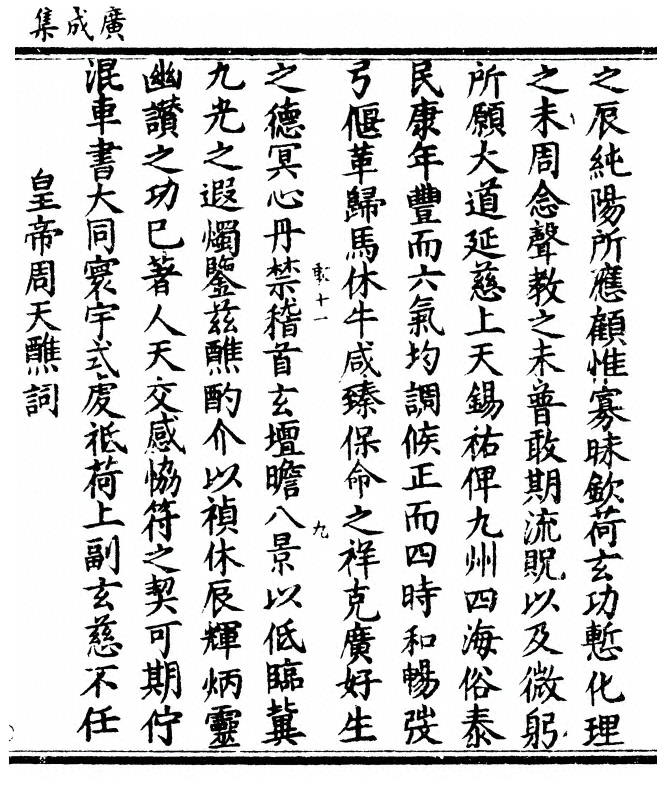 廣成集
之辰純陽所應顧惟寡昧欽荷玄功慙化理
之未周念聲教之未普敢期流貺以及微躬
所願大道延慈上天錫祐俾九州四海俗泰
民康年豐而六氣均調候正而四時和暢弢
弓偃革歸馬休牛咸臻保命之祥克廣好生
十一
九
之德冥心丹禁稽首玄壇瞻八景以低臨冀
九光之遐燭鑒兹醮酌介以禎休辰輝炳靈
幽讚之功已著人天交感恊符之契可期佇
混車書大同寰宇式虔祗荷上副玄慈不任
皇帝周天醮詞